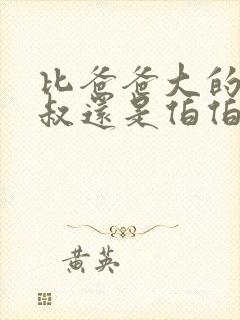 比爸爸大的
叔還是伯伯
黃英